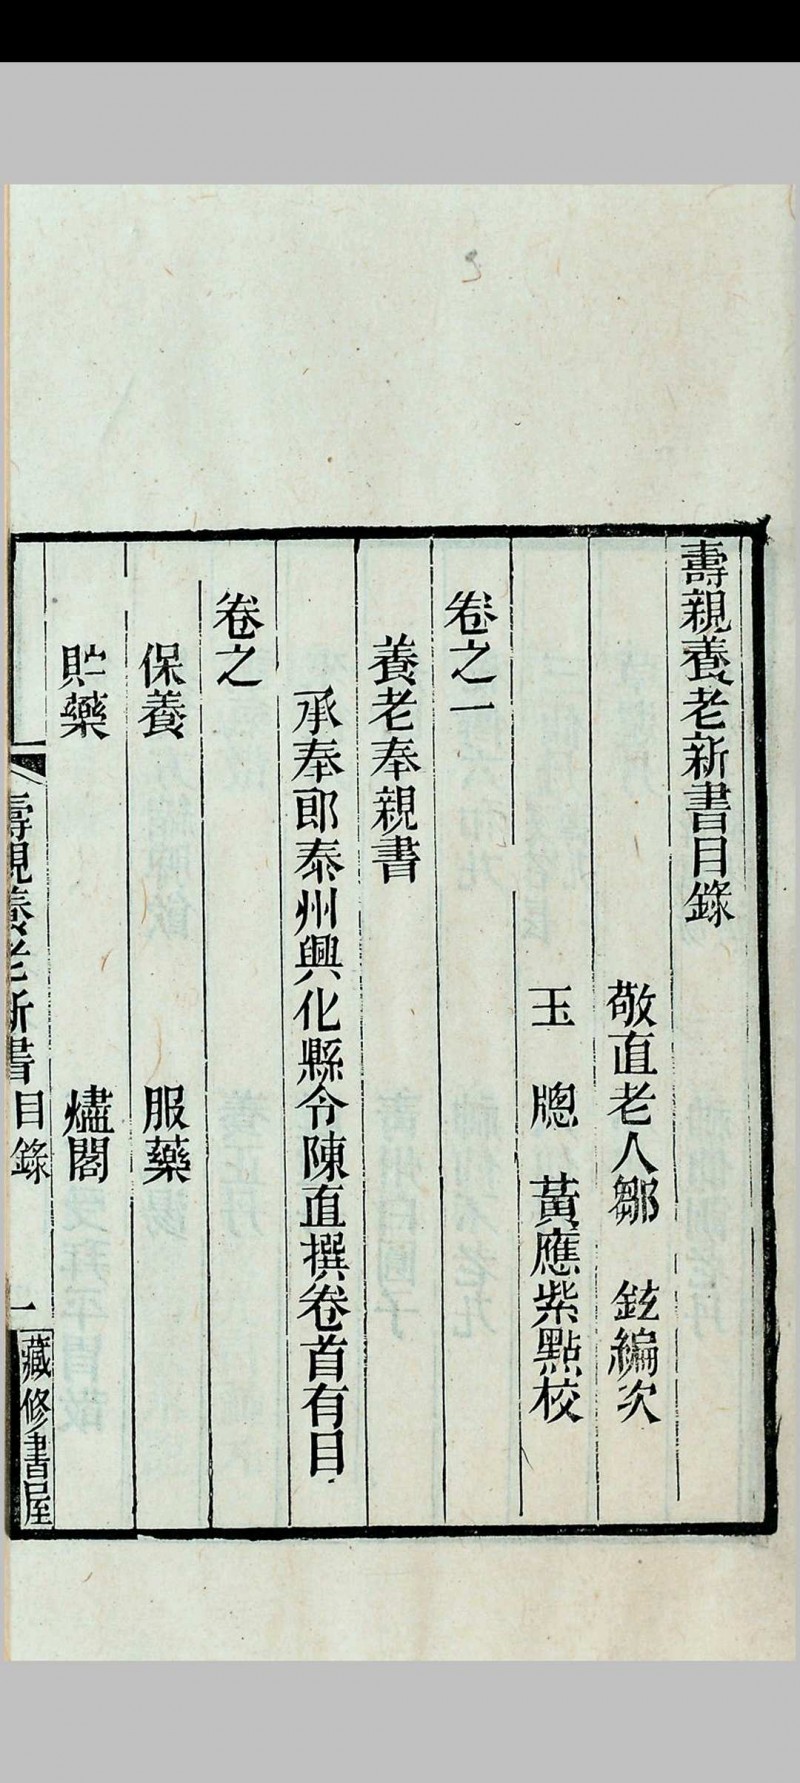 壽親養老新書目錄
敬直老人鄒　鉉編次
玉　牕　黃應紫點校
卷之一
養老奉親書
承奉郎泰州興化縣令陳直撰卷首有目
卷之
保養　服藥
貯藥　爐閣
壽親養老新書目錄　一　藏修書屋